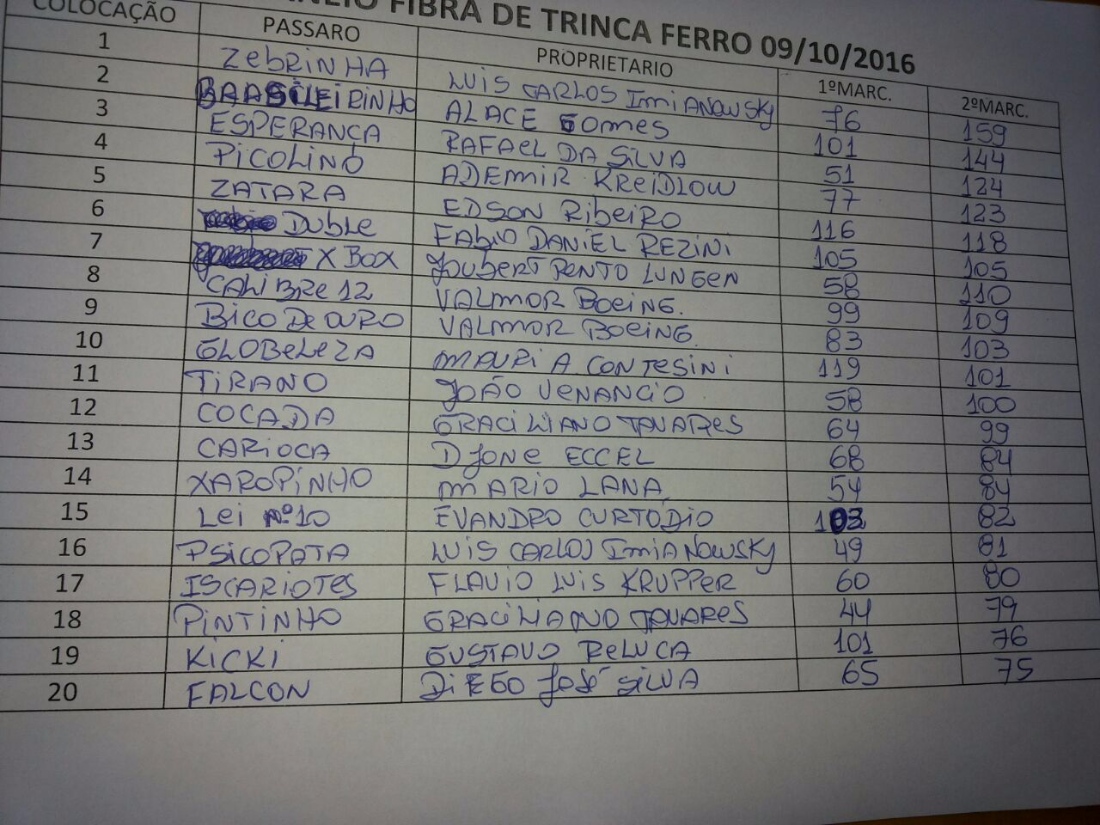 FIBRA DE TRINCA FERRO 09/10/2016
COLOCAÇÃO PASSARO PROPRIETARIO 1ºMARC. 2ºMARC.
1 ZebRINHA LUIS CARLOS ImiANOWSKY 76 159
2 BRASILEIRINHO ALACE Gomes 101 144
3 ESPERANÇA RAFAEL DA SiLVA 51 124
4 PiCOLINO ADEMIR KREIDLOW 77 123
5 ZATARA EDSON RibeiRO 116 118
6 DUbLe FAbIO DANIEL REZINI 105 105
7 X BOX JOUBERT PENTO LUNGEN 58 110
8 CALIBRE 12 VALMOR BOEING. 99 109
9 BICO DE OURO VALMOR BOEING. 83 103
10 GLOBeLeZA MAURI A CONTESINI 119 101
11 TIRANO JOÃO VENANCIO 58 100
12 COCADA GRACILIANO TAVARES 64 99
13 CARiOCA DJONE ECCEL 68 84
14 XAROPINHO MARIO LANA 54 84
15 Lei Nº10 EVANDRO CURTODIO 103 82
16 PSICOPATA LUIS CARLOS ImiANOWSKY 49 81
17 ISCARIOTES FLAVIO LUIS KRUPPER 60 80
18 PINTINHO GRACILIANO TAVARES 44 79
19 KICKI GUSTAVO BELUCA 101 76
20 FALCON DIEGO JOSÉ SILVA 65 75